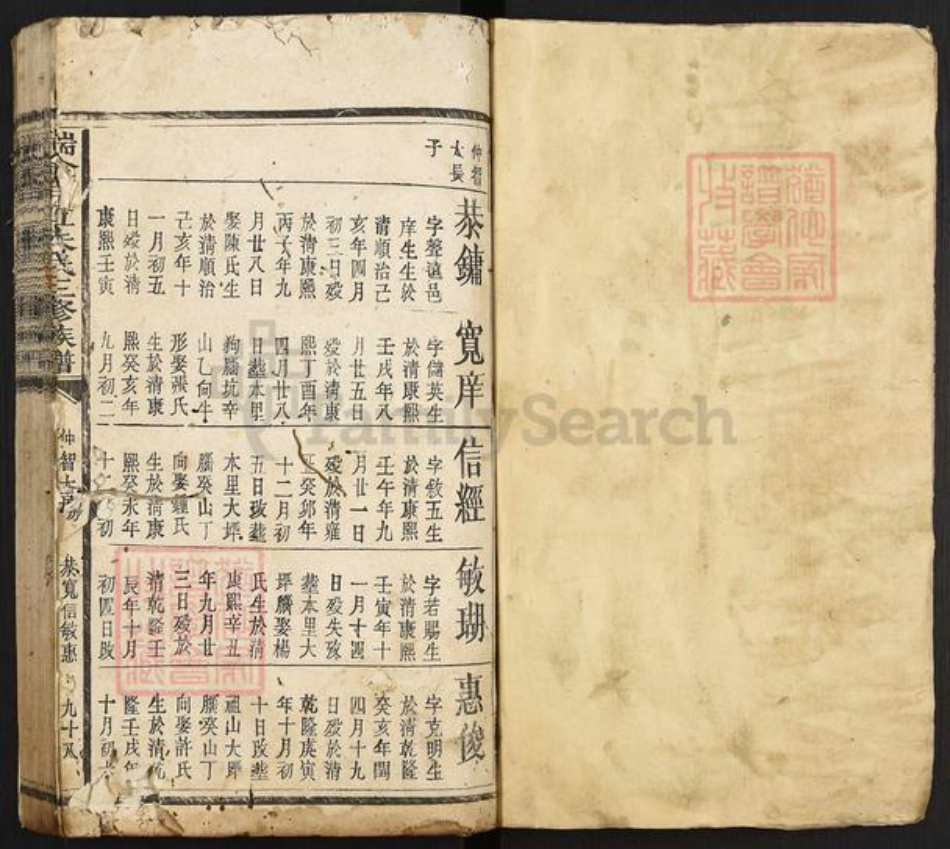 仲智
大長
子
恭鏞
字聲遠邑
庠生生於
清順治己
亥年四月
初三日歿
於清康熙
丙子年九
月廿八日
娶陳氏生
於清順治
己亥年十
一月初五
日歿於清
康熙壬寅
寬庠
字儲英生
於清康熙
壬戌年八
月廿五日
歿於清康
熙丁酉年
四月廿八
日塟本里
狗腦坑辛
山乙向牛
形娶張氏
生於清康
熙癸亥年
九月初二
信經
字敘五生
於清康熙
壬午年九
月廿一日
歿於清雍
正癸卯年
十二月初
五日改塟
本里大坪
腦癸山丁
向娶鍾氏
生於清康
熙癸未年
十二月初
敏瑚
字若賜生
於清康熙
壬寅年十
一月十四
日歿失改
塟本里大
坪腦娶楊
氏生於清
康熙辛丑
年九月廿
三日歿於
清乾隆壬
辰年十月
初四日改
惠俊
字克明生
於清乾隆
癸亥年閏
四月十九
日歿於清
乾隆庚寅
年十月初
十日改塟
祖山大坪
腦癸山丁
向娶許氏
生於清乾
隆壬戌年
十月初六
氏三修族譜
仲智大房
恭寬信敏惠
九十八
FamilySearch